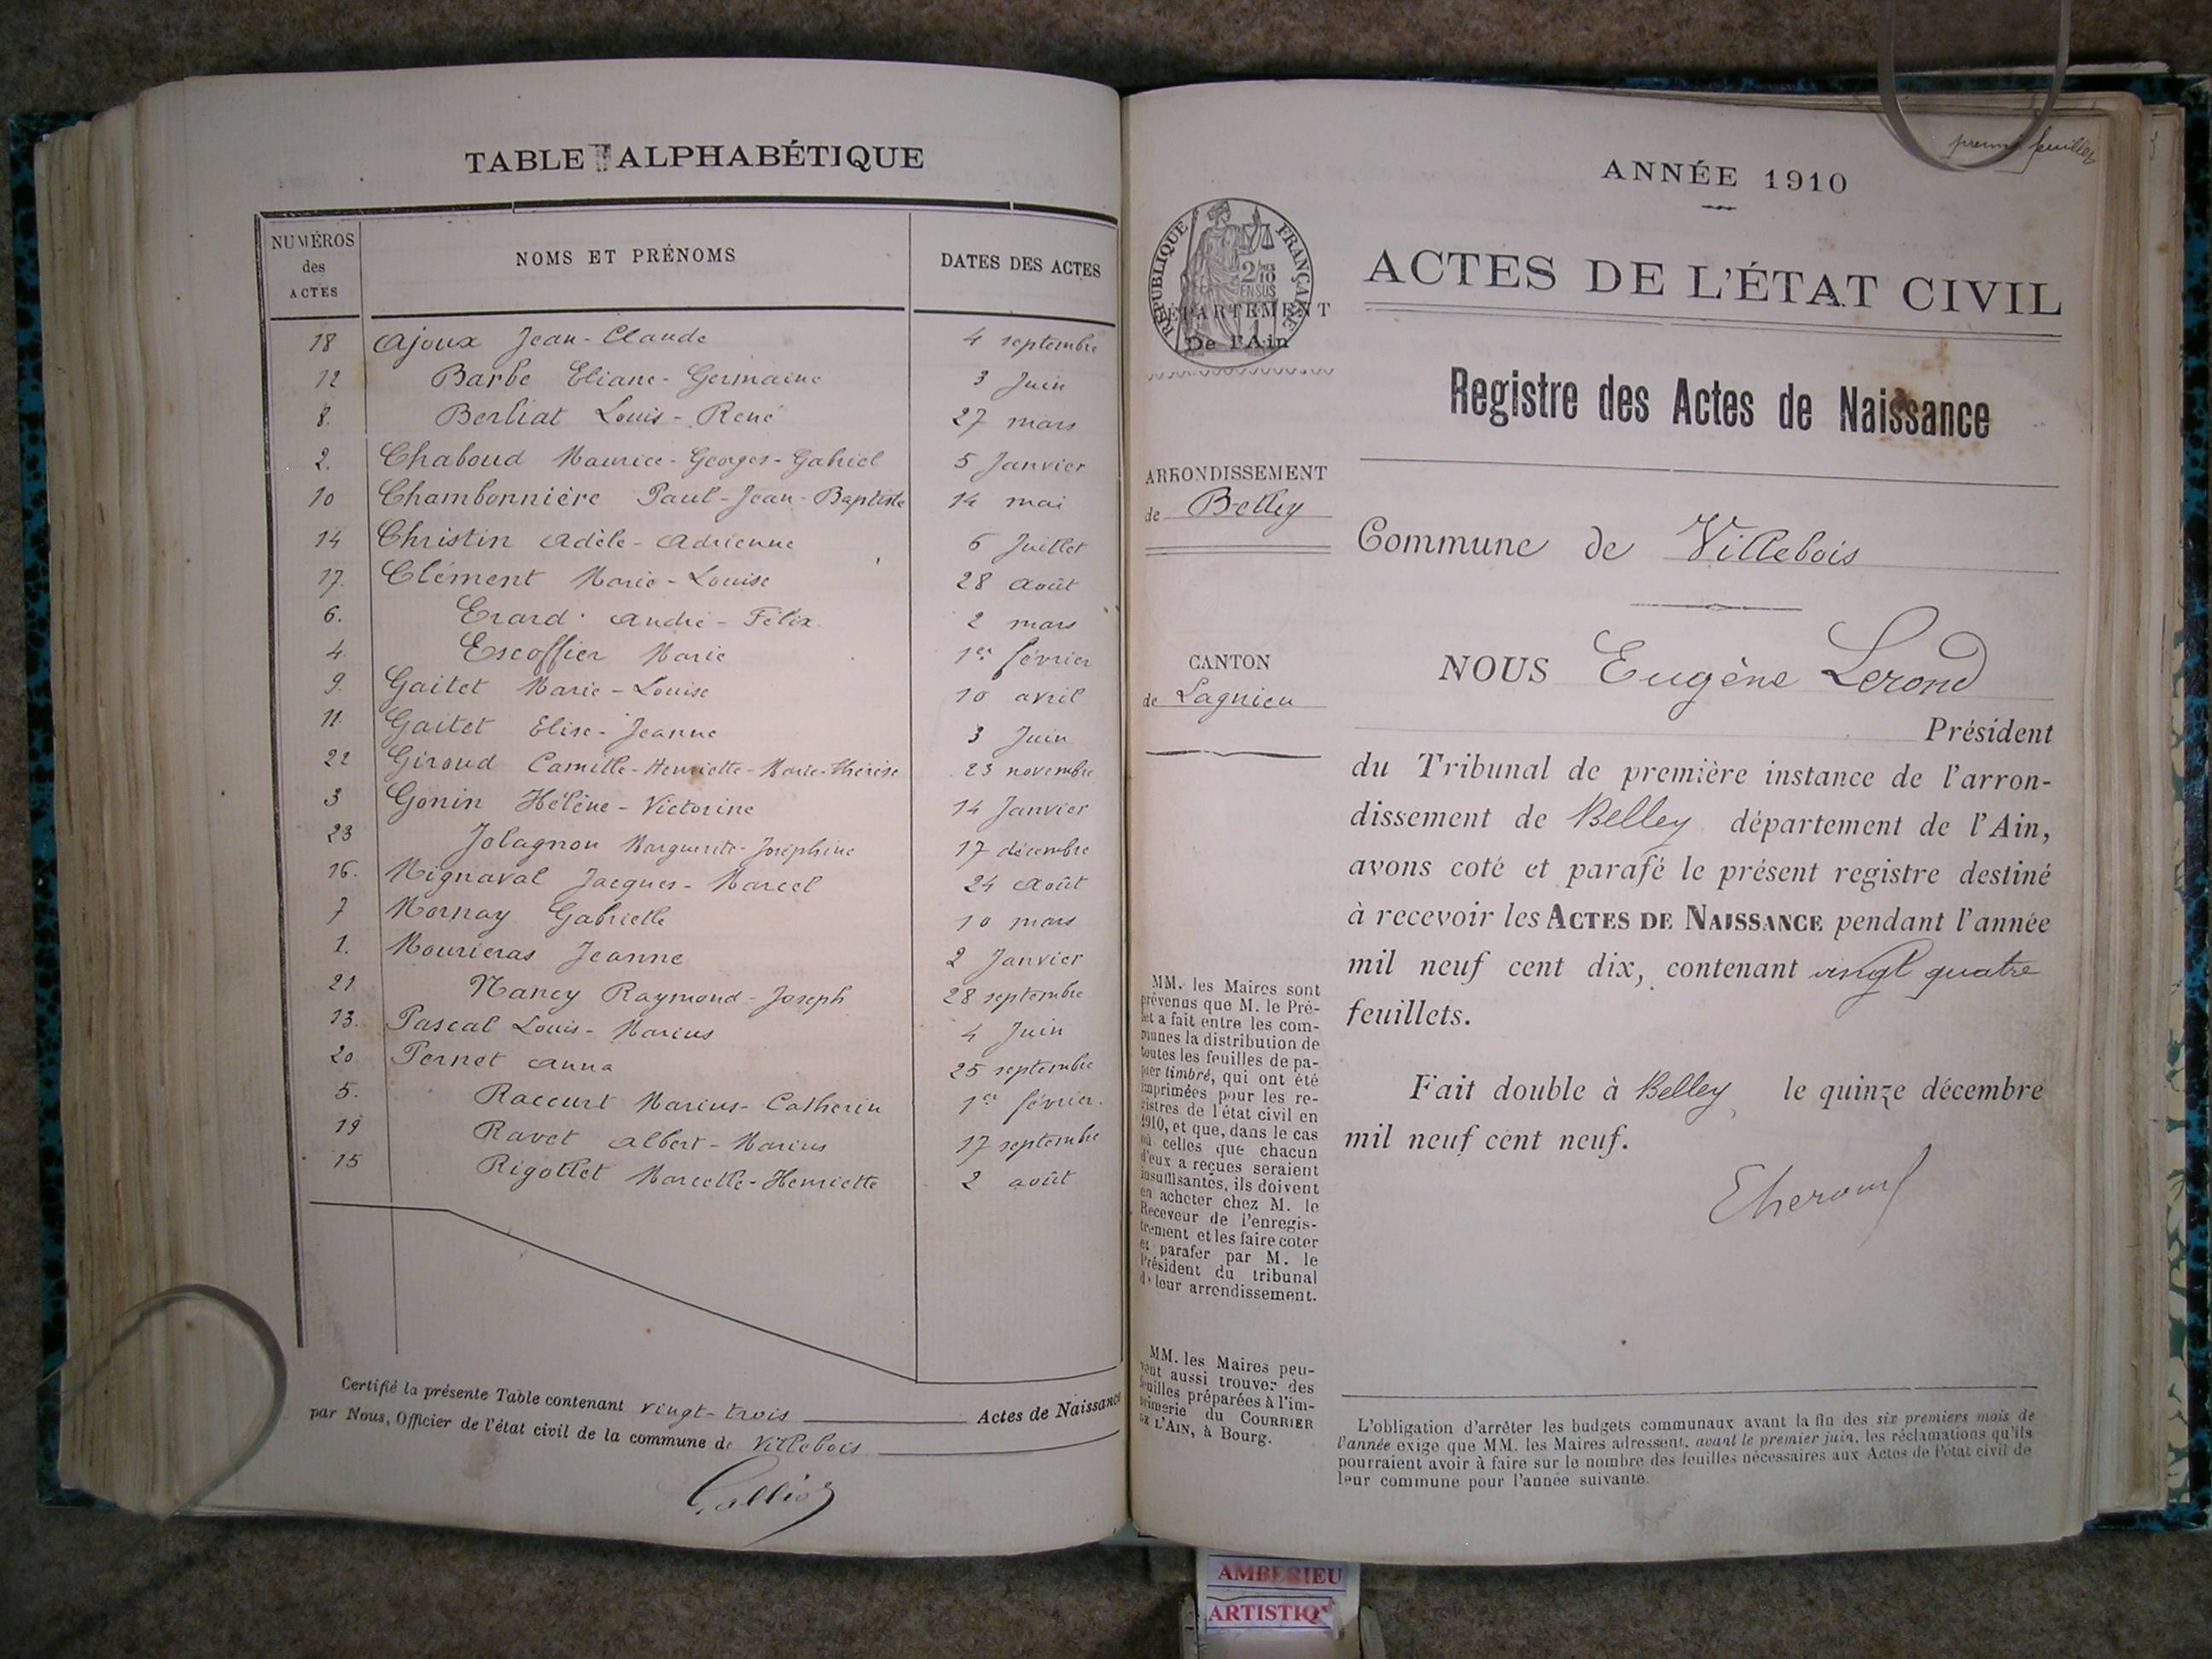 TABLE ALPHABÉTIQUE
NUMÉROS des ACTES NOMS ET PRÉNOMS DATES DES ACTES
18 Ajoux Jean-Claude 4 septembre
12 Barbe Eliane-Germaine 3 Juin
8. Berliat Louis-René 27 mars
2. Chaboud Maurice-Georges-Gabriel 5 Janvier
10 Chambonnière Paul-Jean-Baptiste 14 mai
14 Christin Adèle-Adrienne 6 Juillet
17. Clément Marie-Louise 28 Août
6. Erard André-Félix 2 mars
4 Escoffier Marie 1er février
9. Gaitet Marie-Louise 10 avril
11. Gaitet Elise-Jeanne 3 Juin
22 Giroud Camille-Henriette-Marie-Thérèse 23 novembre
3 Gonin Hélène-Victorine 14 Janvier
23 Jolagnon Marguerite-Joséphine 17 décembre
16. Mignaval Jacques-Marcel 24 Août
7 Mornay Gabrielle 10 mars
1. Mourieras Jeanne 2 Janvier
21 Nancy Raymond-Joseph 28 septembre
13. Pascal Louis-Marius 4 Juin
20 Pernet Anna 25 septembre
5. Raccurt Marius-Catherin 1er février.
19 Ravet Albert-Marius 17 septembre
15 Rigollet Marcelle-Henriette 2 août
Certifié la présente Table contenant vingt-trois Actes de Naissance
par Nous, Officier de l'état civil de la commune de Villebois
premier feuillet
ANNÉE 1910
RÉPUBLIQUE FRANÇAISE
2/10 EN SUS
DÉPARTEMENT
De l'Ain
ACTES DE L'ÉTAT CIVIL
Registre des Actes de Naissance
ARRONDISSEMENT
de Belley
Commune de Villebois
CANTON
de Lagnieu
NOUS Eugène Lerond
Président
du Tribunal de première instance de l'arron-
dissement de Belley département de l'Ain,
avons coté et parafé le présent registre destiné
à recevoir les ACTES DE NAISSANCE pendant l'année
mil neuf cent dix, contenant vingt quatre
feuillets.
Fait double à Belley, le quinze décembre
mil neuf cent neuf.
MM. les Maires sont
prévenus que M. le Pré-
fet a fait entre les com-
munes la distribution de
toutes les feuilles de pa-
pier timbré, qui ont été
imprimées pour les re-
gistres de l'état civil en
1910, et que, dans le cas
où celles que chacun
d'eux a reçues seraient
insuffisantes, ils doivent
en acheter chez M. le
Receveur de l'enregis-
trement et les faire coter
et parafer par M. le
Président du tribunal
de leur arrondissement.
MM. les Maires peu-
vent aussi trouver des
feuilles préparées à l'im-
primerie du COURRIER
DE L'AIN, à Bourg.
L'obligation d'arrêter les budgets communaux avant la fin des six premiers mois de
l'année exige que MM. les Maires adressent, avant le premier juin, les réclamations qu'ils
pourraient avoir à faire sur le nombre des feuilles nécessaires aux Actes de l'état civil de
leur commune pour l'année suivante.
AMBERIEU
ARTISTIQ